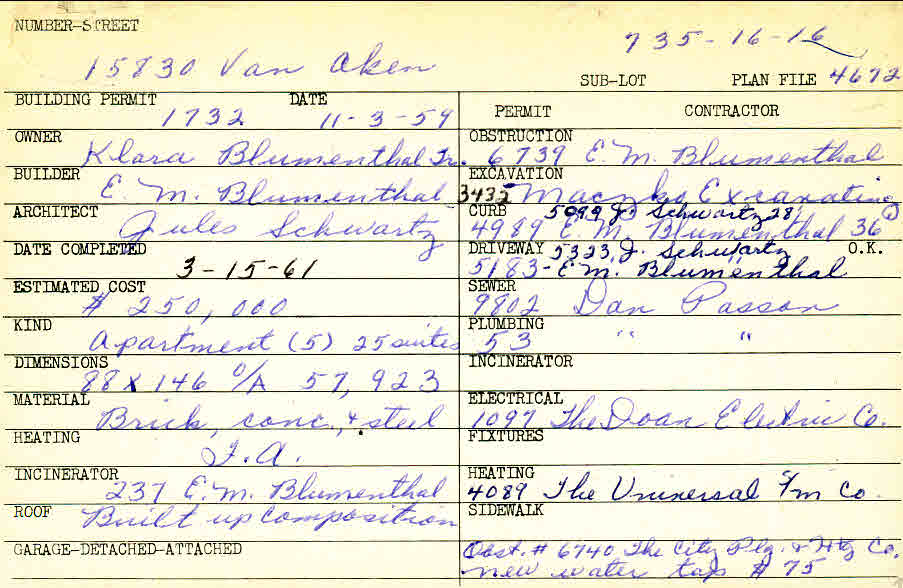 NUMBER-STREET
735-16-16
15830 Van Aken
SUB-LOT PLAN FILE 4672
BUILDING PERMIT DATE
1732 11-3-59
PERMIT CONTRACTOR
OWNER
Klara Blumenthal Tr.
OBSTRUCTION
6739 E. M. Blumenthal
BUILDER
E. M. Blumenthal
EXCAVATION
3432 Maczko Excavating
ARCHITECT
Jules Schwartz
CURB 5099 J. Schwartz 28'
4989 E. M. Blumenthal 36
DATE COMPLETED
3-15-61
DRIVEWAY 5323 J. Schwartz O.K.
5183-E.M. Blumenthal
ESTIMATED COST
# 250,000
SEWER
9802 Dan Passon
KIND
Apartment (5) 25 suites
PLUMBING
53 " "
DIMENSIONS
88 x 146 O/A 57,923
INCINERATOR
MATERIAL
Brick, conc., & steel
ELECTRICAL
1097 The Doan Electric Co.
HEATING
F.A.
FIXTURES
INCINERATOR
237 E.M. Blumenthal
HEATING
4089 The Universal F/m Co.
ROOF Built up composition
SIDEWALK
GARAGE-DETACHED-ATTACHED
Obst. # 6740 The City Plg. & Htg Co.
new water tap # 75